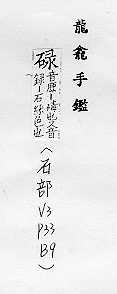 龍龕手鑑
碌
音歷﹣礰也又音
録﹣石緑色也
(石部V3P33B9)